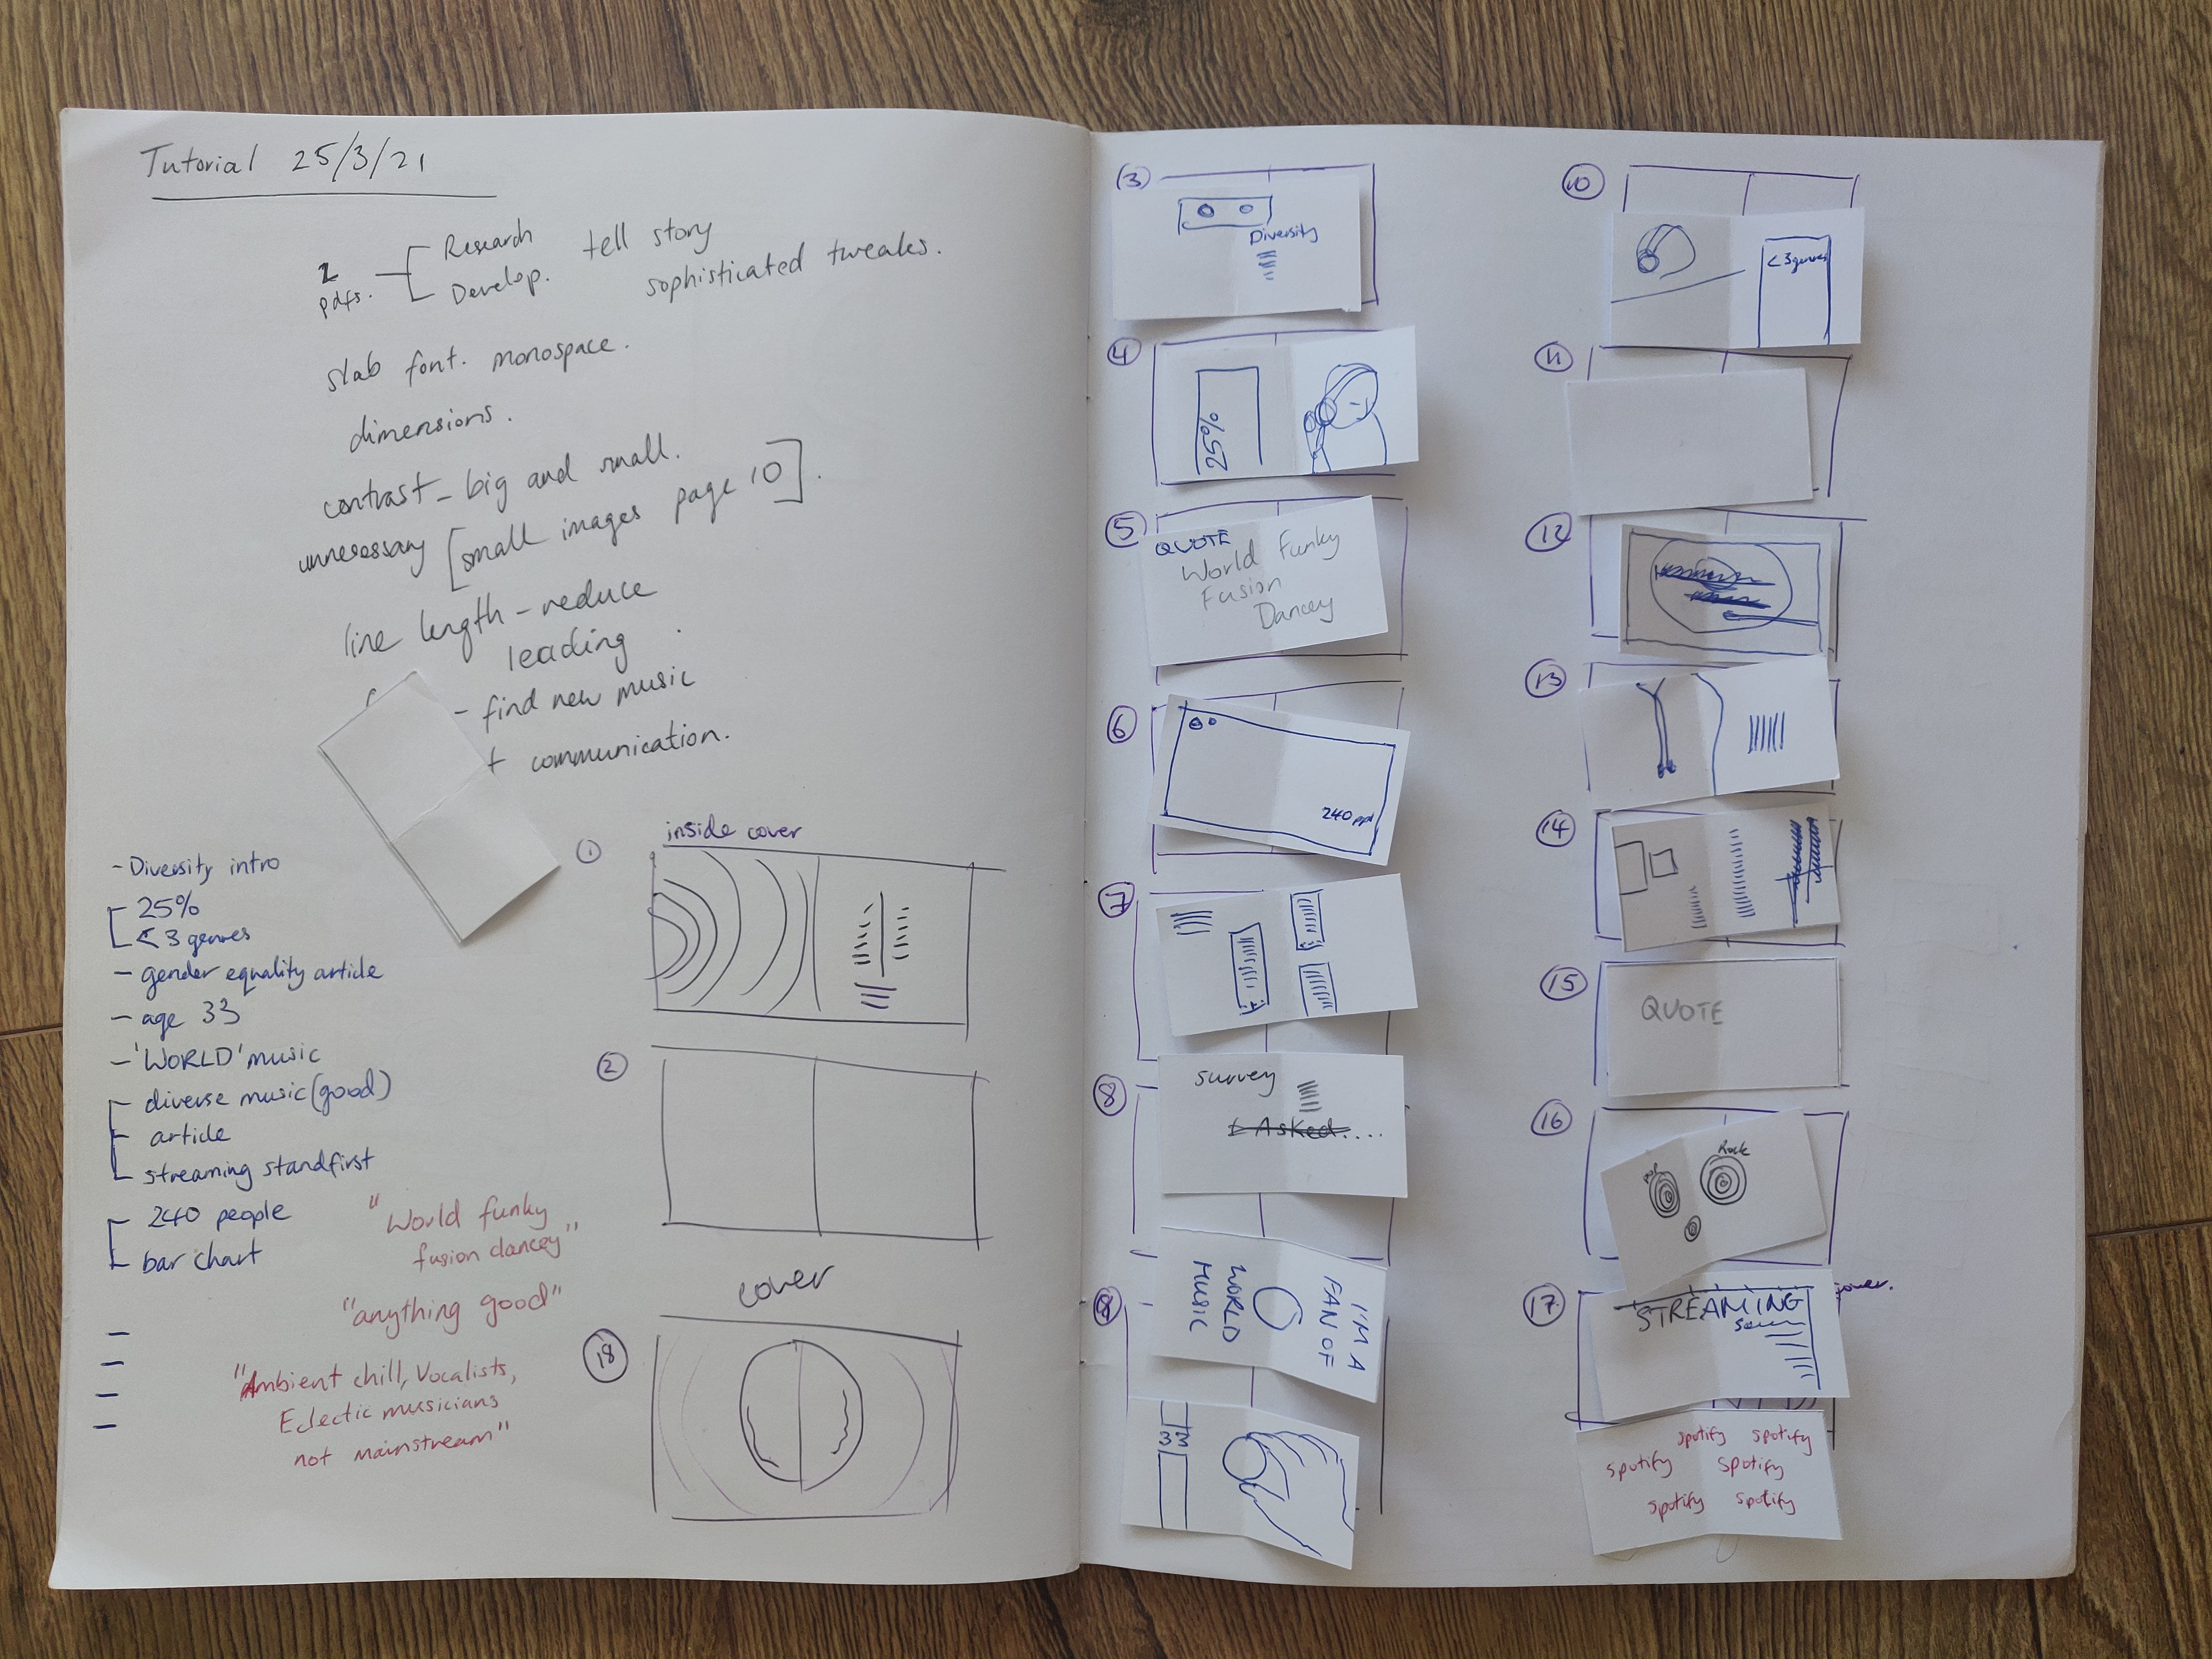 Tutorial 25/3/21
2 pdfs.
Research
Develop.
tell story
sophisticated tweaks.
slab font. monospace.
dimensions.
contrast - big and small.
unnecessary [small images page 10].
line length - reduce
leading
- find new music
communication.
- Diversity intro
25%
< 3 genres
- gender equality article
- age 33
- 'WORLD' music
diverse music (good)
article
streaming standfirst
240 people
bar chart
"World funky
fusion dancey"
"anything good"
"Ambient chill, Vocalists,
Eclectic musicians
not mainstream"
1
inside cover
2
cover
18
3
Diversity
4
25%
5
QUOTE
World Funky
Fusion
Dancey
6
240 ppl
7
8
survey
I Asked....
I'M A
FAN OF
WORLD
MUSIC
33
10
< 3 genres
11
12
13
14
15
QUOTE
16
Pop
Rock
17
STREAMING
cover.
spotify spotify
spotify spotify
spotify spotify